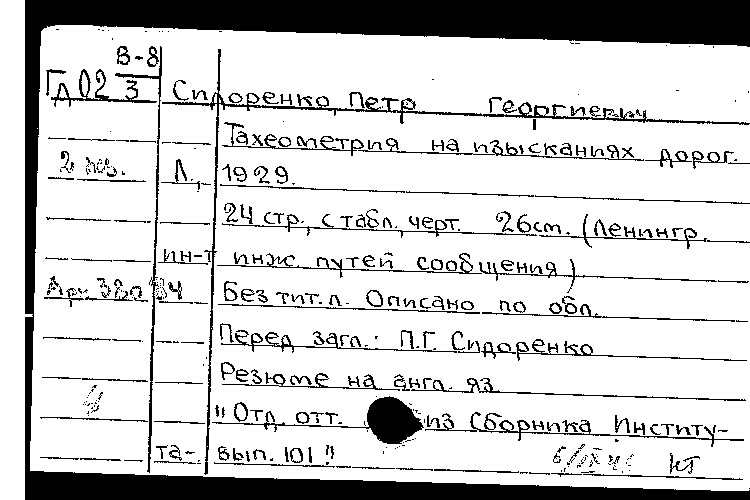 В-8
Гд 02 3 Сидоренко, Петр Георгиевич
Тахеометрия на изысканиях дорог.
2 экз. Л., 1929.
24 стр., с табл., черт. 26 см. (Ленингр.
ин-т инж. путей сообщения)
Без тит. л. Описано по обл.
Перед загл.: П.Г. Сидоренко
Резюме на англ. яз
"Отд. отт. из Сборника Институ-
та-. вып. 101"
НТ